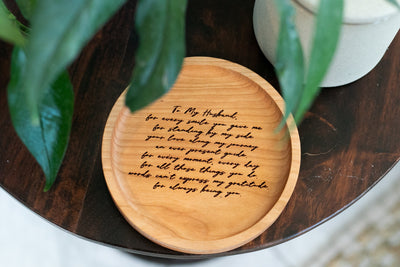 To My Husband,
for every smile you gave me
for standing by my side
your love along my journey
an ever present guide.
for every moment, every day
for all those things you do
words can't express my gratitude.
for always being you.